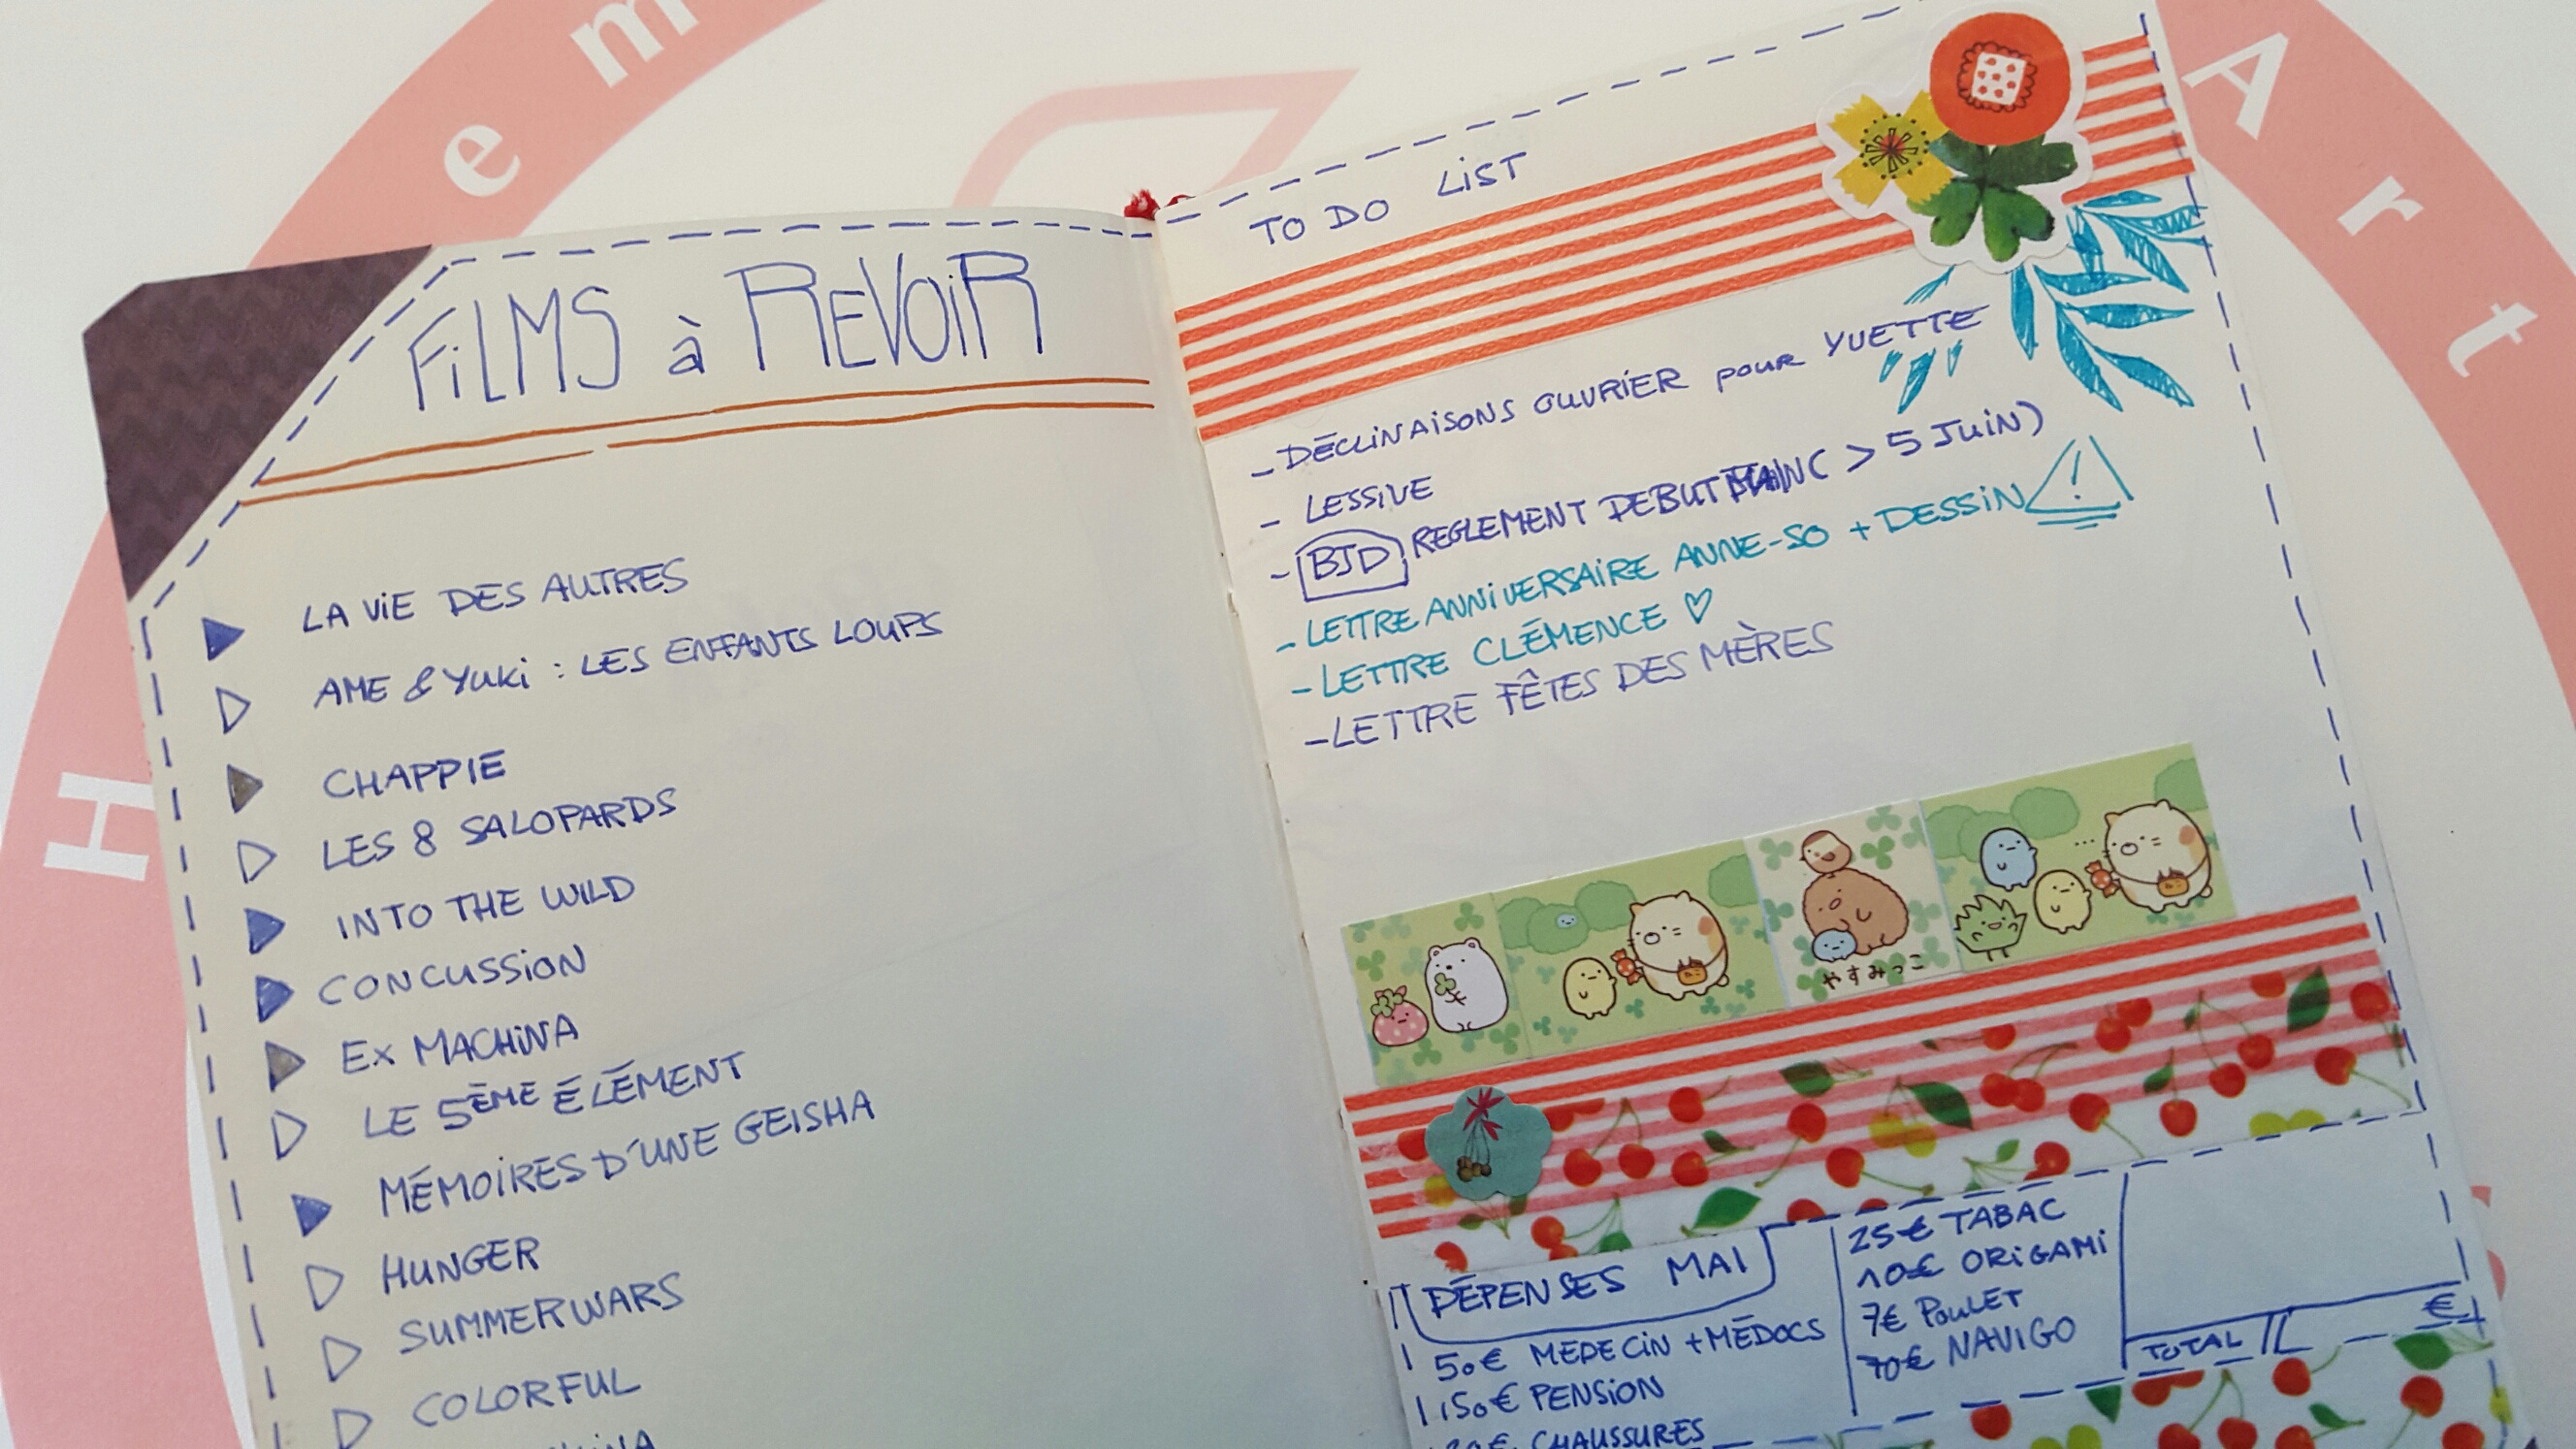 H e m
A r t
FiLMS à REVOiR
LA ViE DES AUTRES
AME & YUKi : LES ENFANTS LOUPS
CHAPPIE
LES 8 SALOPARDS
INTO THE WILD
CONCUSSiON
EX MACHiNA
LE 5ÈME ÉLÉMENT
MÉMOiRES D'UNE GEISHA
HUNGER
SUMMERWARS
COLORFUL
TO DO LiST
- DÉCLiNAiSONS OUVRiER pour YVETTE
- LESSIVE
- BJD REGLEMENT DEBUT > 5 Juin)
- LETTRE ANNiVERSAiRE ANNE-SO + DESSiN !
- LETTRE CLÉMENCE ♡
- LETTRE FÊTES DES MÈRES
やすみっこ
DÉPENSES MAI
50€ MEDECiN + MÉDOCS
150€ PENSiON
CHAUSSURES
25€ TABAC
10€ ORiGAMi
7€ PouLET
70€ NAViGO
TOTAL €